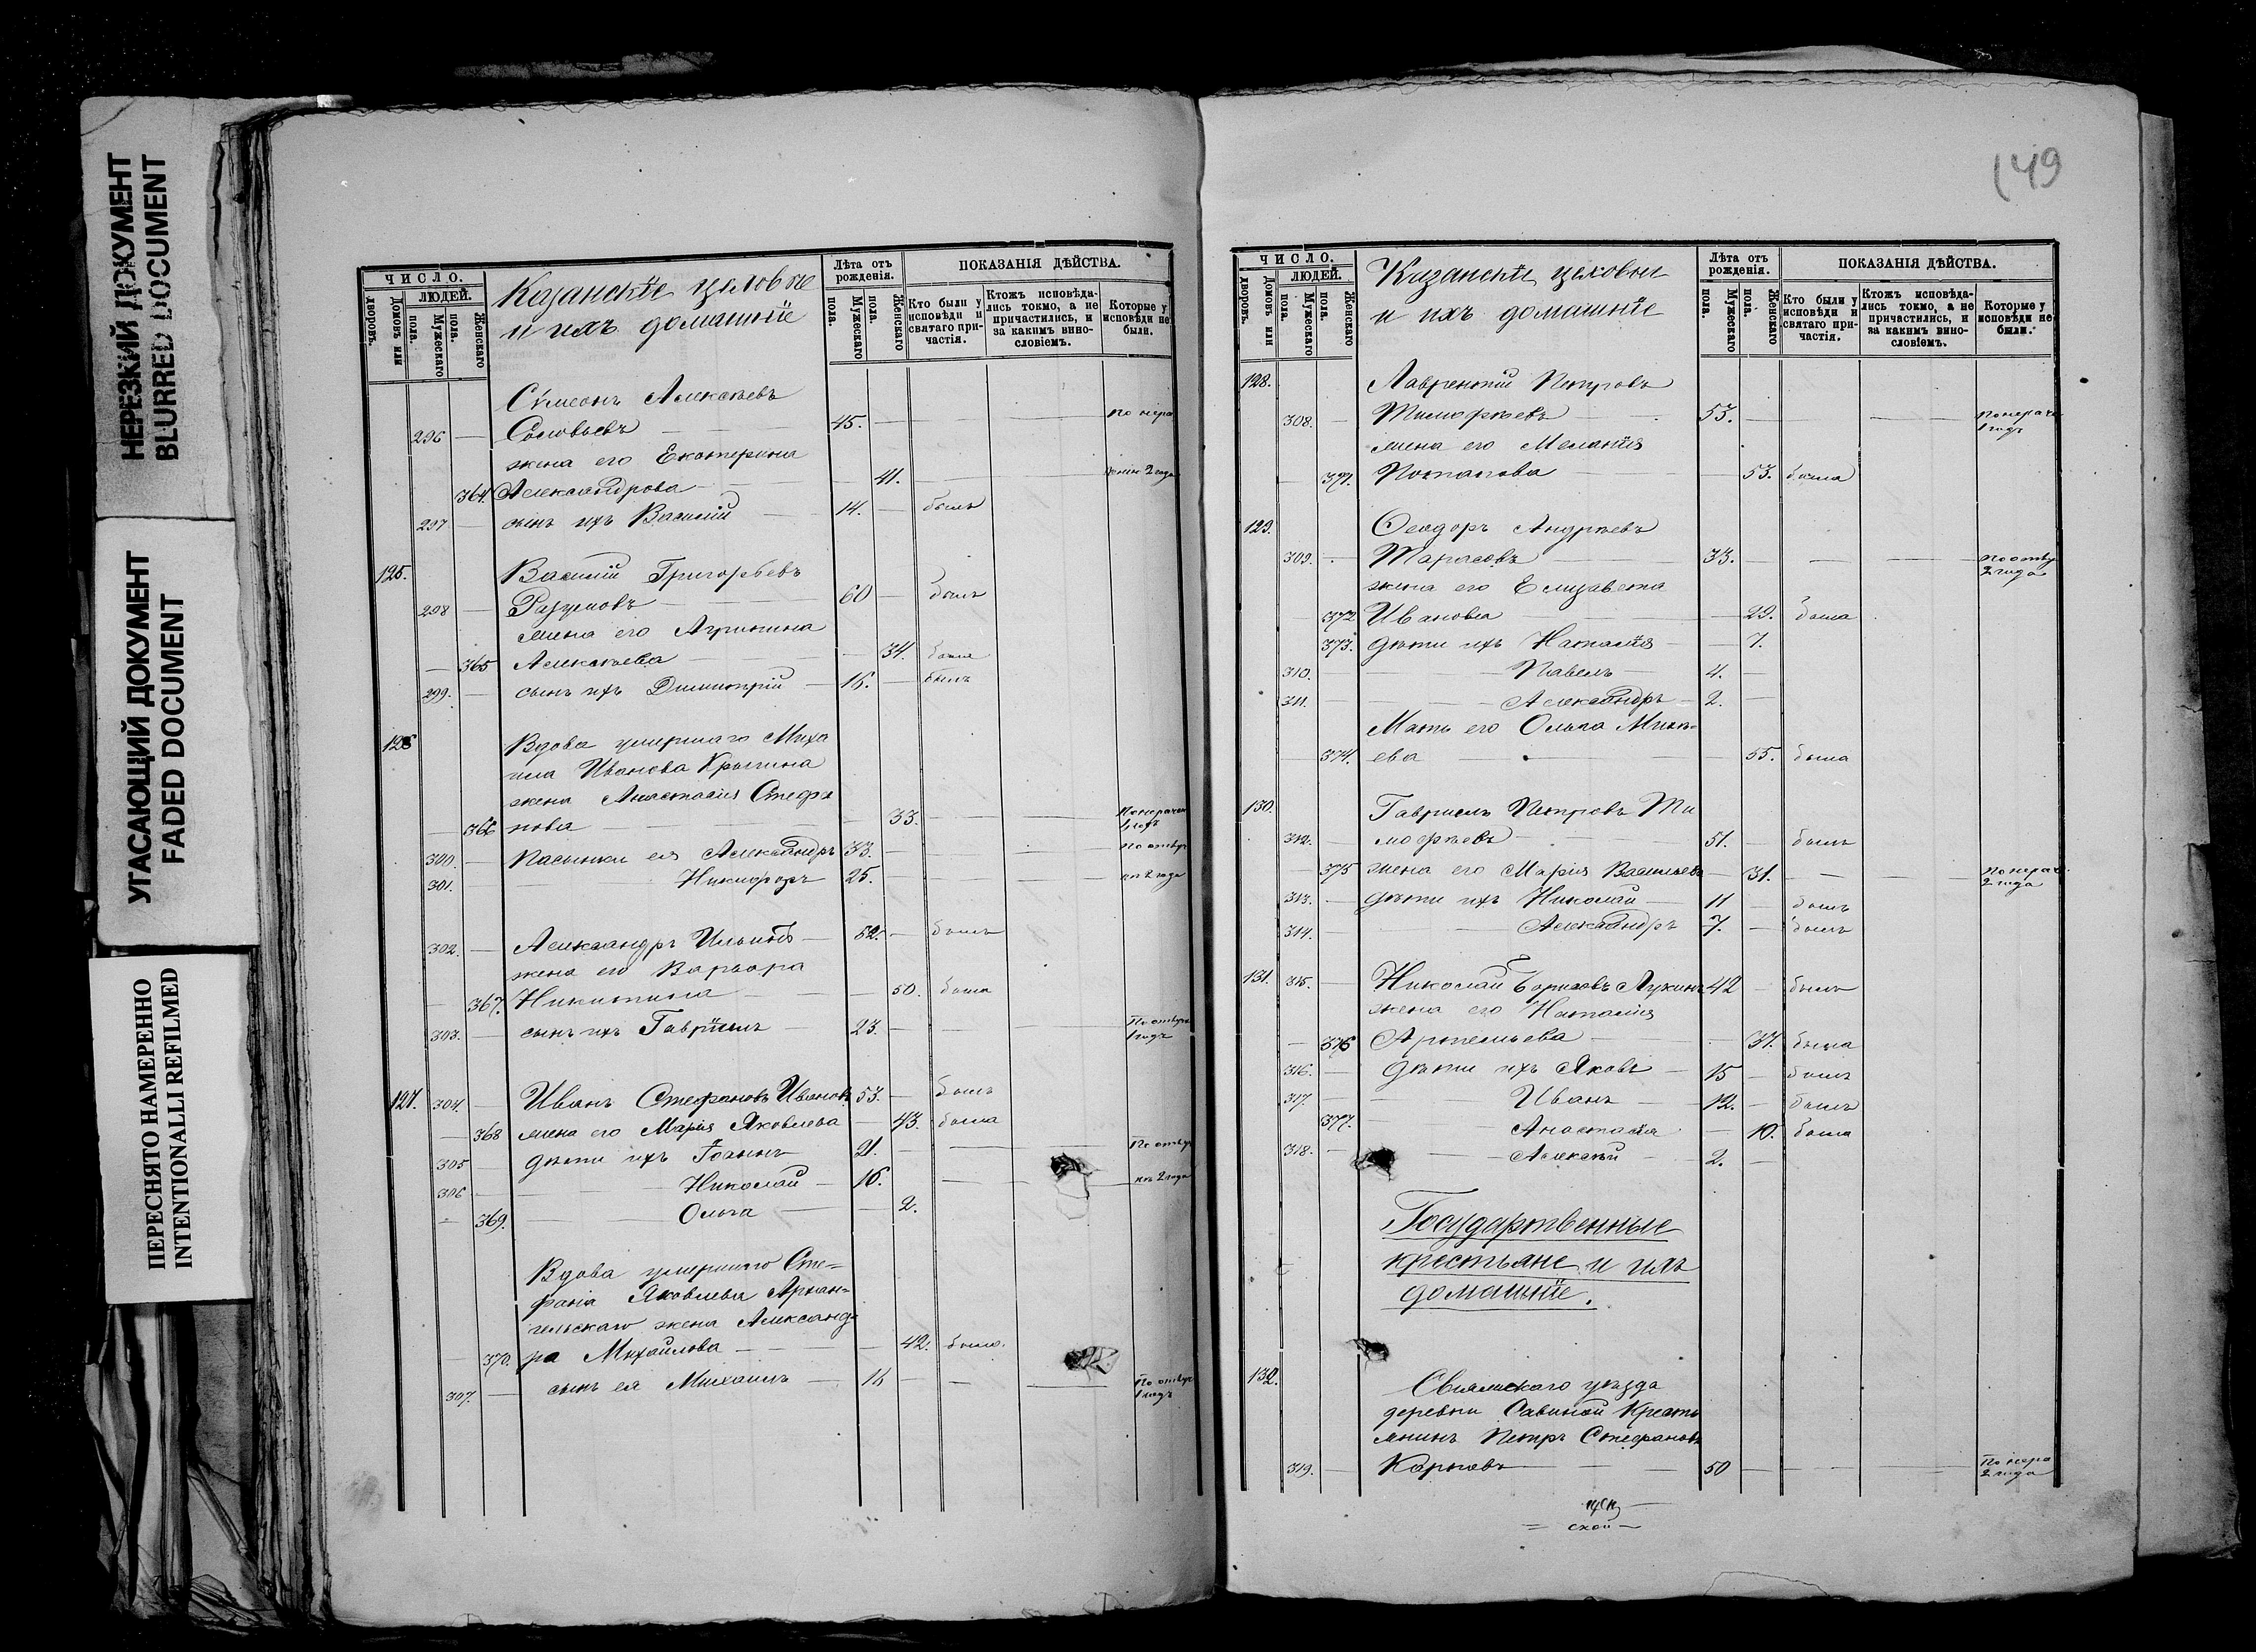 НЕРЕЗКИЙ ДОКУМЕНТ
BLURRED DOCUMENT
УГАСАЮЩИЙ ДОКУМЕНТ
FADED DOCUMENT
ПЕРЕСНЯТО НАМЕРЕННО
INTENTIONALLI REFILMED
ЧИСЛО.
ЛЮДЕЙ.
Домовъ или дворовъ.
Мужескаго пола.
Женскаго пола.
Казанскіе цеховые
и ихъ домашніе
Лѣта отъ рожденія.
Мужескаго пола.
Женскаго пола.
ПОКАЗАНІЯ ДѢЙСТВА.
Кто были у исповѣди и святаго при-частія.
Ктожъ исповѣда-лись токмо, а не причастились, и за какимъ вино-словіемъ.
Которые у исповѣди не были.
Симеонъ Алексѣевъ
296 Соловьевъ 45. по нера
жена его Екатерина
364. Александрова 41. 2 года
297 сынъ ихъ Василій 14. былъ
125. Василій Григорьевъ
298 Разумовъ 60 былъ
жена его Агрипина
365 Алексѣева 34. была
299. сынъ ихъ Димитрій 16. былъ
126 Вдова умершаго Миха
ила Иванова Крынина
жена Анастасія Стефа
366 нова 33. По нерачен 1 годъ
300. пасынки ея Александръ 33. по отлуч
301. Никифоръ 25. 2 года
302. Александръ Ильинъ 52. былъ
жена его Варвара
367. Никитина 50. была
303. сынъ ихъ Гавріилъ 23. По отлуч 1 годъ
127. 304. Иванъ Стефановъ Ивановъ 53. былъ
368 жена его Марія Яковлева 43. была
305 дѣти ихъ Іоаннъ 21. По отлуч
306 Николай 16. 2 года
369. Ольга 2.
Вдова умершаго Сте-
фана Яковлева Архан-
гельскаго жена Александ-
370. ра Михайлова 42. была.
307. сынъ ея Михаилъ 16 По отлуч 1 годъ
149
ЧИСЛО.
ЛЮДЕЙ.
Домовъ или дворовъ.
Мужескаго пола.
Женскаго пола.
Казанскіе цеховые
и ихъ домашніе
Лѣта отъ рожденія.
Мужескаго пола.
Женскаго пола.
ПОКАЗАНІЯ ДѢЙСТВА.
Кто были у исповѣди и святаго при-частія.
Ктожъ исповѣда-лись токмо, а не причастились, и за какимъ вино-словіемъ.
Которые у исповѣди не были.
128. Лаврентій Петровъ
308. Тимофеевъ 55. по нераче 1 годъ
жена его Меланія
371. Потапова 53. была
129. Ѳеодоръ Андреевъ
309. Тарасовъ 33. по отлу 2 года
жена его Елизавета
372 Иванова 29. была
373. дѣти ихъ Наталія 7.
310. Павелъ 4.
311. Александръ 2.
Мать его Ольга Михѣ-
374. ева 55. была
130. Гавріилъ Петровъ Ти
312. мофѣевъ 51. былъ
375 жена его Марія Васильева 31. по нерач. 2 года
313. дѣти ихъ Николай 11 былъ
314. Александръ 7. былъ
131. 315. Николай Борисовъ Лукинъ 42 былъ
жена его Наталія
376 Артемьева 37. была
316. дѣти ихъ Яковъ 15 былъ
317. Иванъ 12. былъ
377. Анастасія 10. была
318. Алексѣй 2.
Государственные
крестьяне и ихъ
домашніе.
132. Свіяжскаго уѣзда
деревни Савиной Кресть
янинъ Петръ Стефановъ
319. Карповъ 50 По нера 2 года